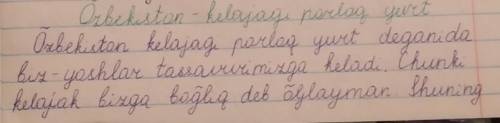 Ozbekistan - kelajagi porlaq yurt
Õzbekistan kelajagi porlaq yurt deganida
biz-yoshlar tassavvirimizga keladi. Chunki
kelajak bizga bog̃liq deb õylayman. Shuning